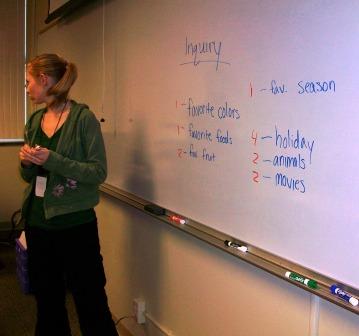 Inquiry
1 - favorite colors
1 - favorite foods
2 - fav fruit
1 - fav. season
4 - holiday
2 - animals
2 - movies